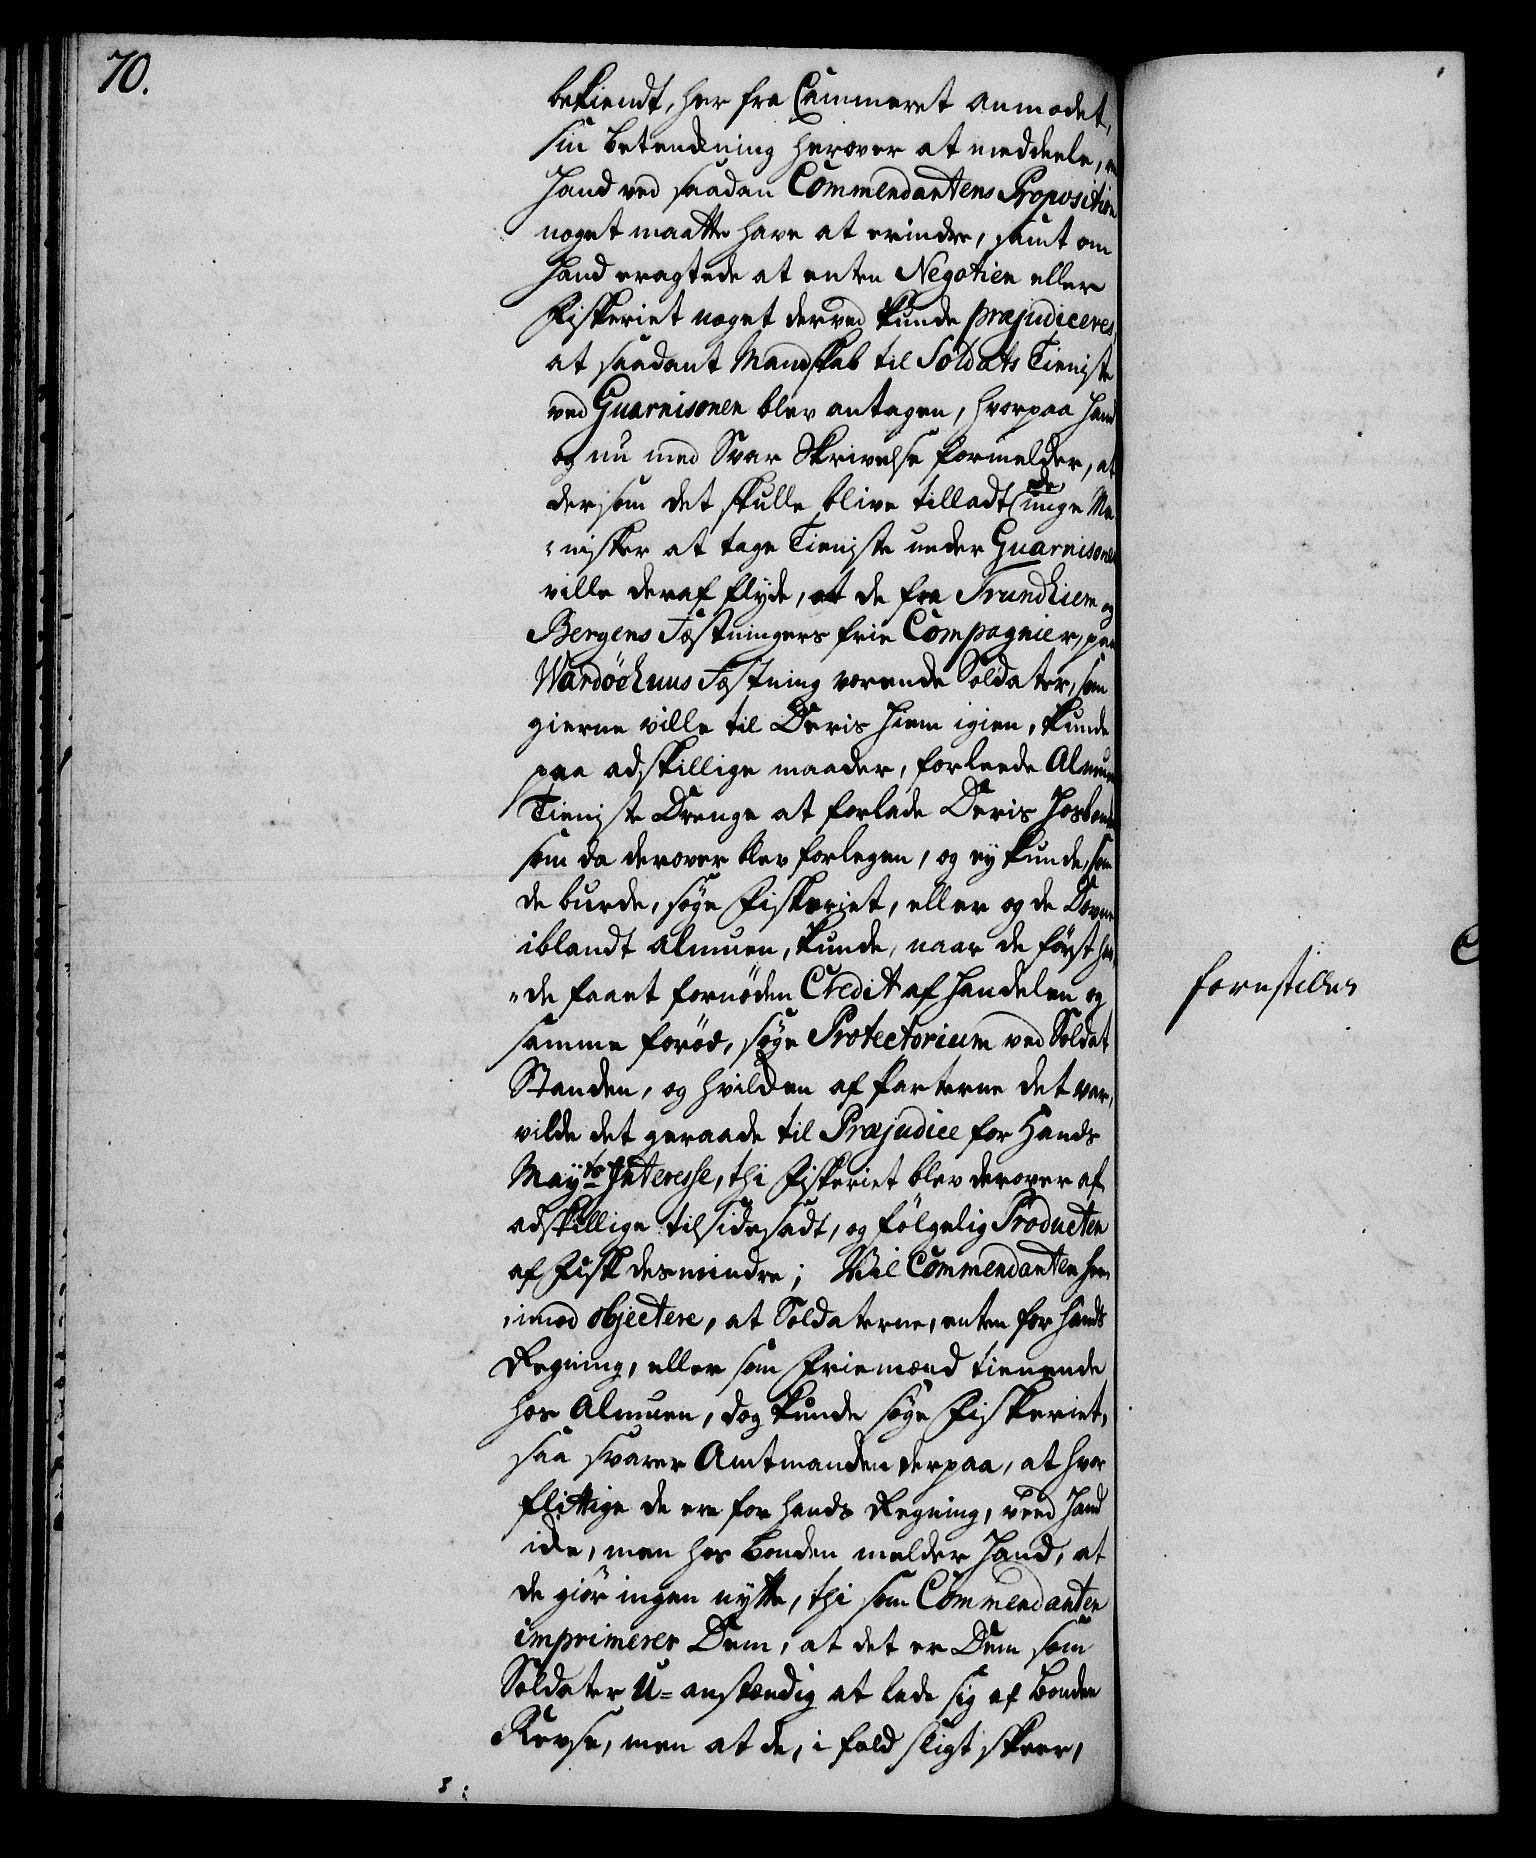 70.
bekiendt, her fra Cammeret anmodet,
sin betenckning herover at meddeele,
Hand ved saadan Commendantens Proposition
noget maatte have at erindre, samt om
Hand eragtede at enten Negotien eller
Fiskeriet noget derved kunde præjudiceres,
at saadant Mandskab til Soldats Tieniste
ved Guarnisonen blev antagen, hvorpaa Hand
og nu med Svar Skrivelse formelder, at
dersom det skulle blive tilladt de unge Me
:nisker at tage Tieniste under Guarnisonen
ville deraf flyde, at de fra Trundhiem og
Bergens Fæstningers frie Compagnier, paa
Wardöehuus Fæstning værende Soldater, som
gierne ville til Deris Hiem igien, kunde
paa adskillige maader, forleede Almuens
Tieniste Drenge at forlade Deris Hosbonde
som da derover blev forlegen, og ey kunde, som
de burde, søge Fiskeriet, eller og de Dovne
iblandt almuen, kunde, naar de først hav
"de faaet fornöden Credit af Handelen og
samme forød, søge Protectorium ved Soldat
Standen, og hvilcken af parterne det var,
vilde det geraade til Præjudice for Hands
Mayts Interesse, thi Fiskeriet blev derover af
adskillige tilsidesadt, og følgelig Producten
af Fisk desmindre; Wil Commendanten her
:imod objectere, at Soldaterne, enten for hands
Regning, eller som Friemænd tienende
hos Almuen, dog kunde søge Fiskeriet,
saa svarer Amtmanden derpaa, at hvor
flittige de ere for hands Regning, veed Hand
icke, men hos bonden melder Hand, at
de giør ingen nytte, thi som Commendanten
imprimerer Dem, at det er Dem som
Soldater U=anstændig at lade sig af bonden
Revse, men at de, i fald sligt skeer,
forestilles